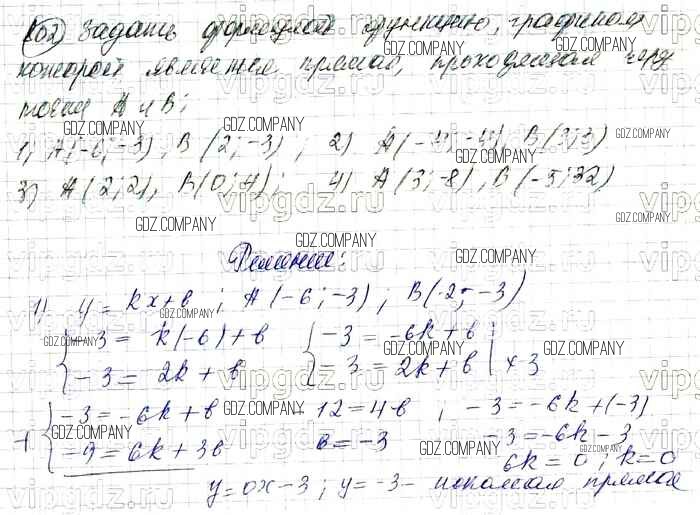 102) Задать формулой функцию, графиком
которой является прямая, проходящая через
точки А и В:
1) А(-6; -3), В(2; -3); 2) А(-4; -4), В(3; 3)
3) А(2; 2), В(0; 4); 4) А(3; -8), В(-5; 32)
Решение:
1) y = kx + b; А(-6; -3); В(2; -3)
{-3 = k(-6) + b {-3 = -6k + b
{-3 = 2k + b {-3 = 2k + b | × 3
+ {-3 = -6k + b -12 = 4b ; -3 = -6k + (-3)
{-9 = 6k + 3b b = -3 -3 = -6k - 3
6k = 0 ; k = 0
y = 0x - 3 ; y = -3 - искомая прямая
GDZ.COMPANY
vipgdz.ru